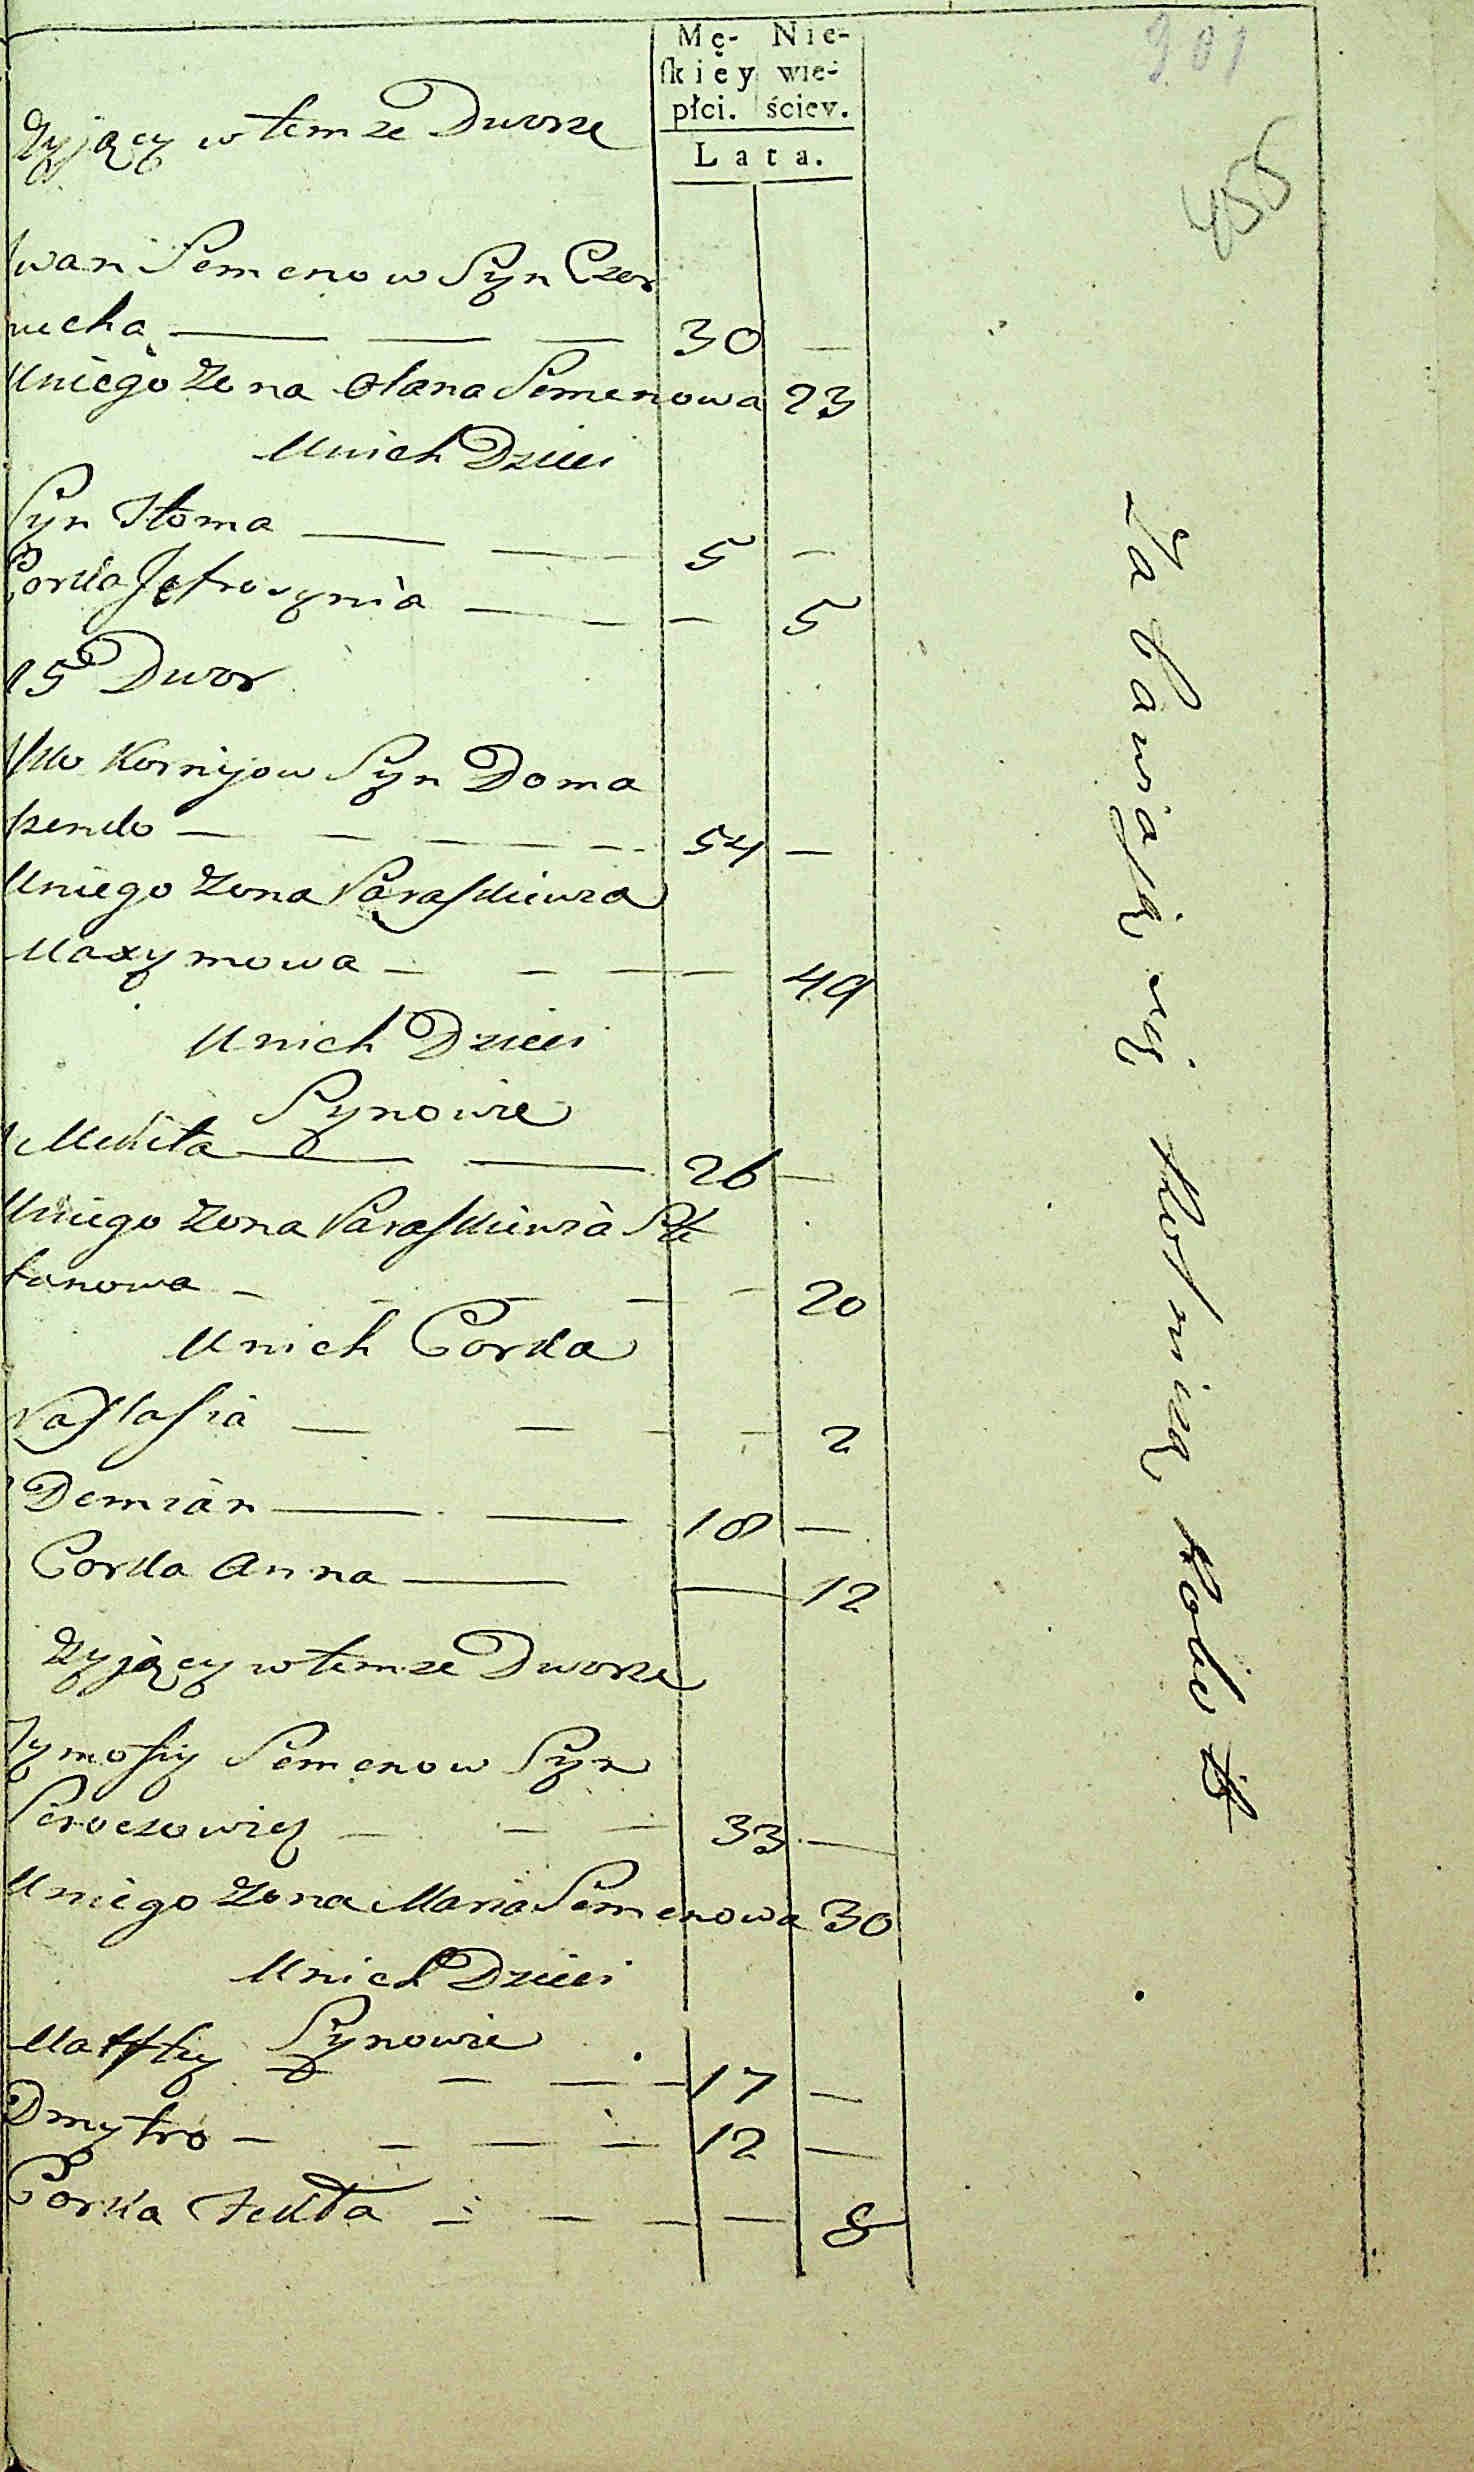 Mę- Nie-
ſkiey wie-
płci. ściey.
Lata.
901
455
Zyjący w temze Dworze
Iwan Semenow Syn Czer
nucha 30 —
Uniego Zona Olana Semenowa 23
Unich Dzieci
Syn Tłoma — 5 —
Corka Jefrosynia — — 5
15 Dwor
Kornijow Syn Doma
54 —
Uniego Zona Paraskiewia
Maxymowa — 49
Unich Dzieci
Synowie
Mikita — 26 —
Uniego Zona Paraskiewia Ste
fanowa — 20
Unich Corka
Nastasia — 2
Demian — 18 —
Corka Anna — 12
Zyjący w temze Dworze
Tymofiy Semenow Syn
33 —
Uniego Zona Maria Semenowa 30
Unich Dzieci
Synowie
Matfiy — 17 —
Dmytro — 12 —
Corka Tekla — — 8
Zabawiają się Rolniczą Robotą